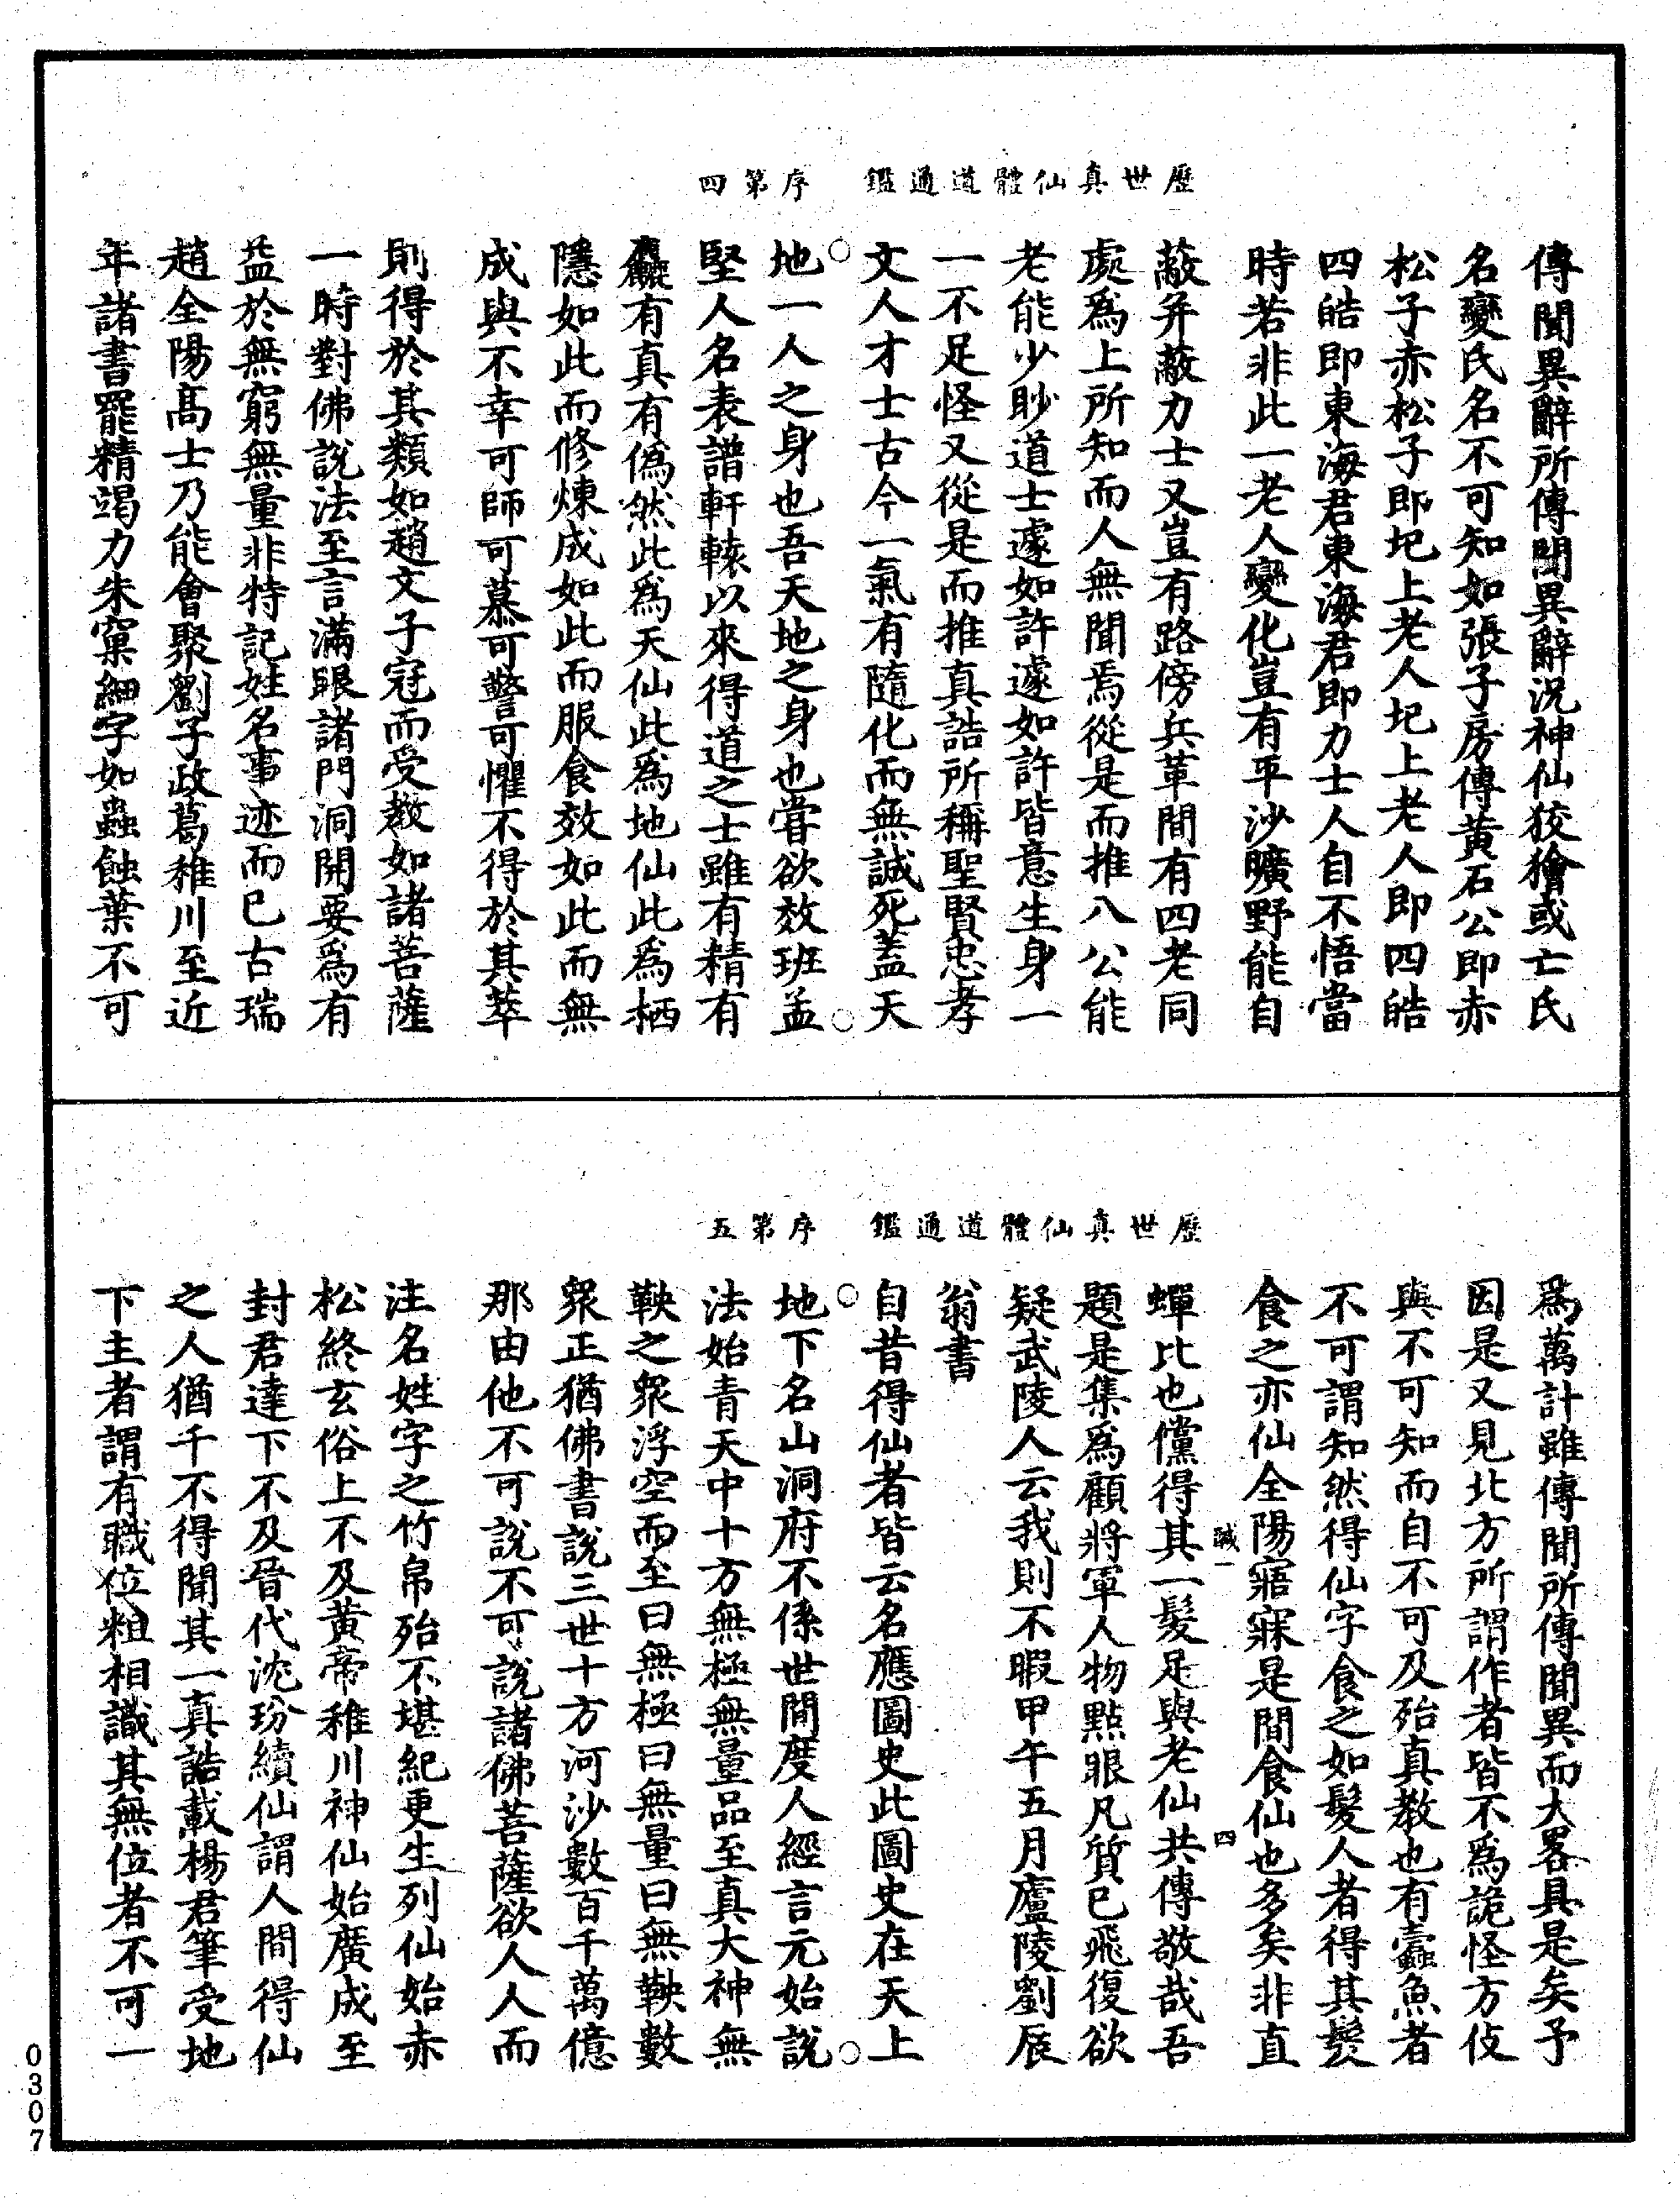 歷世真仙體道通鑑　序第四
傳聞異辭所傳聞異辭況神仙狡獪或亡氏
名變氏名不可知如張子房傳黃石公即赤
松子赤松子即圯上老人圯上老人即四皓
四皓即東海君東海君即力士人自不悟當
時若非此一老人變化豈有平沙曠野能自
蔽并蔽力士又豈有路傍兵革間有四老同
處為上所知而人無聞焉從是而推八公能
老能少眇道士遽如許遽如許皆意生身一
一不足怪又從是而推真誥所稱聖賢忠孝
文人才士古今一氣有隨化而無誠死蓋天
地一人之身也吾天地之身也嘗欲效班孟
堅人名表譜軒轅以來得道之士雖有精有
麤有真有偽然此為天仙此為地仙此為栖
隱如此而修煉成如此而服食效如此而無
成與不幸可師可慕可警可懼不得於其萃
則得於其類如趙文子冠而受教如諸菩薩
一時對佛說法至言滿眼諸門洞開要為有
益於無窮無量非特記姓名事迹而已古瑞
趙全陽高士乃能會聚劉子政葛稚川至近
年諸書罷精竭力朱窠細字如蟲蝕葉不可
歷世真仙體道通鑑　序第五
為萬計雖傳聞所傳聞異而大畧具是矣予
因是又見北方所謂作者皆不為詭怪方伎
與不可知而自不可及殆真教也有蠹魚者
不可謂知然得仙字食之如髮人者得其髮
食之亦仙全陽寤寐是間食仙也多矣非直
蟬比也儻得其一髮足與老仙共傳敬哉吾
題是集為顧將軍人物點眼凡質已飛復欲
疑武陵人云我則不暇甲午五月廬陵劉辰
翁書
自昔得仙者皆云名應圖史此圖史在天上
地下名山洞府不係世間度人經言元始說
法始青天中十方無極無量品至真大神無
鞅之眾浮空而至曰無極曰無量曰無鞅數
眾正猶佛書說三世十方河沙數百千萬億
那由他不可說不可說諸佛菩薩欲人人而
注名姓字之竹帛殆不堪紀更生列仙始赤
松終玄俗上不及黃帝稚川神仙始廣成至
封君達下不及晉代沈玢續仙謂人間得仙
之人猶千不得聞其一真誥載楊君筆受地
下主者謂有職位粗相識其無位者不可一
誠一
四
0307